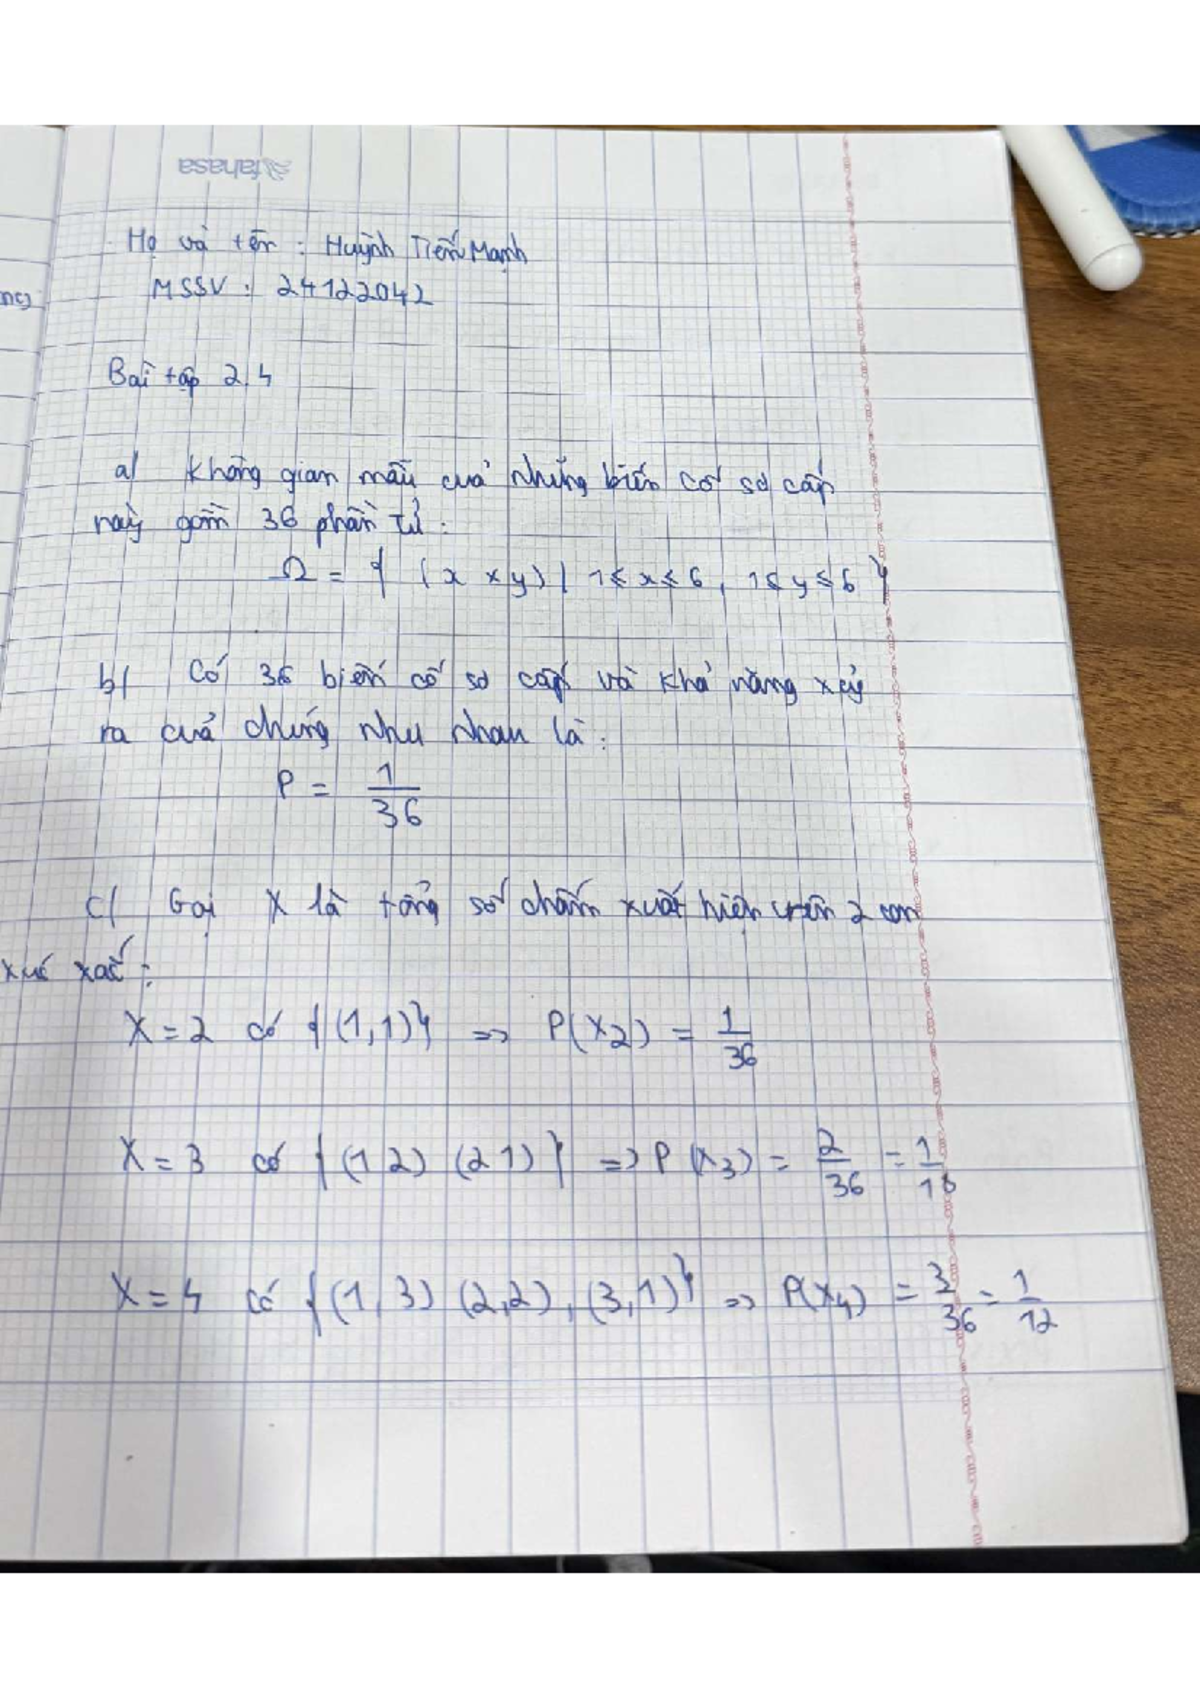 fahasa
Họ và tên : Huỳnh Tiến Mạnh
MSSV : 24122042
Bài tập 2.4
a/ Không gian mẫu của những biến cố sơ cấp
này gồm 36 phần tử :
Ω = { (x × y) | 1 ≤ x ≤ 6 , 1 ≤ y ≤ 6 }
b/ Có 36 biến cố sơ cấp và khả năng xảy
ra của chúng như nhau là :
P = 1/36
c/ Gọi X là tổng số chấm xuất hiện trên 2 con
xúc xắc :
X = 2 có {(1,1)} => P(X2) = 1/36
X = 3 có {(1 2) (2 1)} => P(X3) = 2/36 = 1/18
X = 4 có {(1,3) (2,2), (3,1)} => P(X4) = 3/36 = 1/12